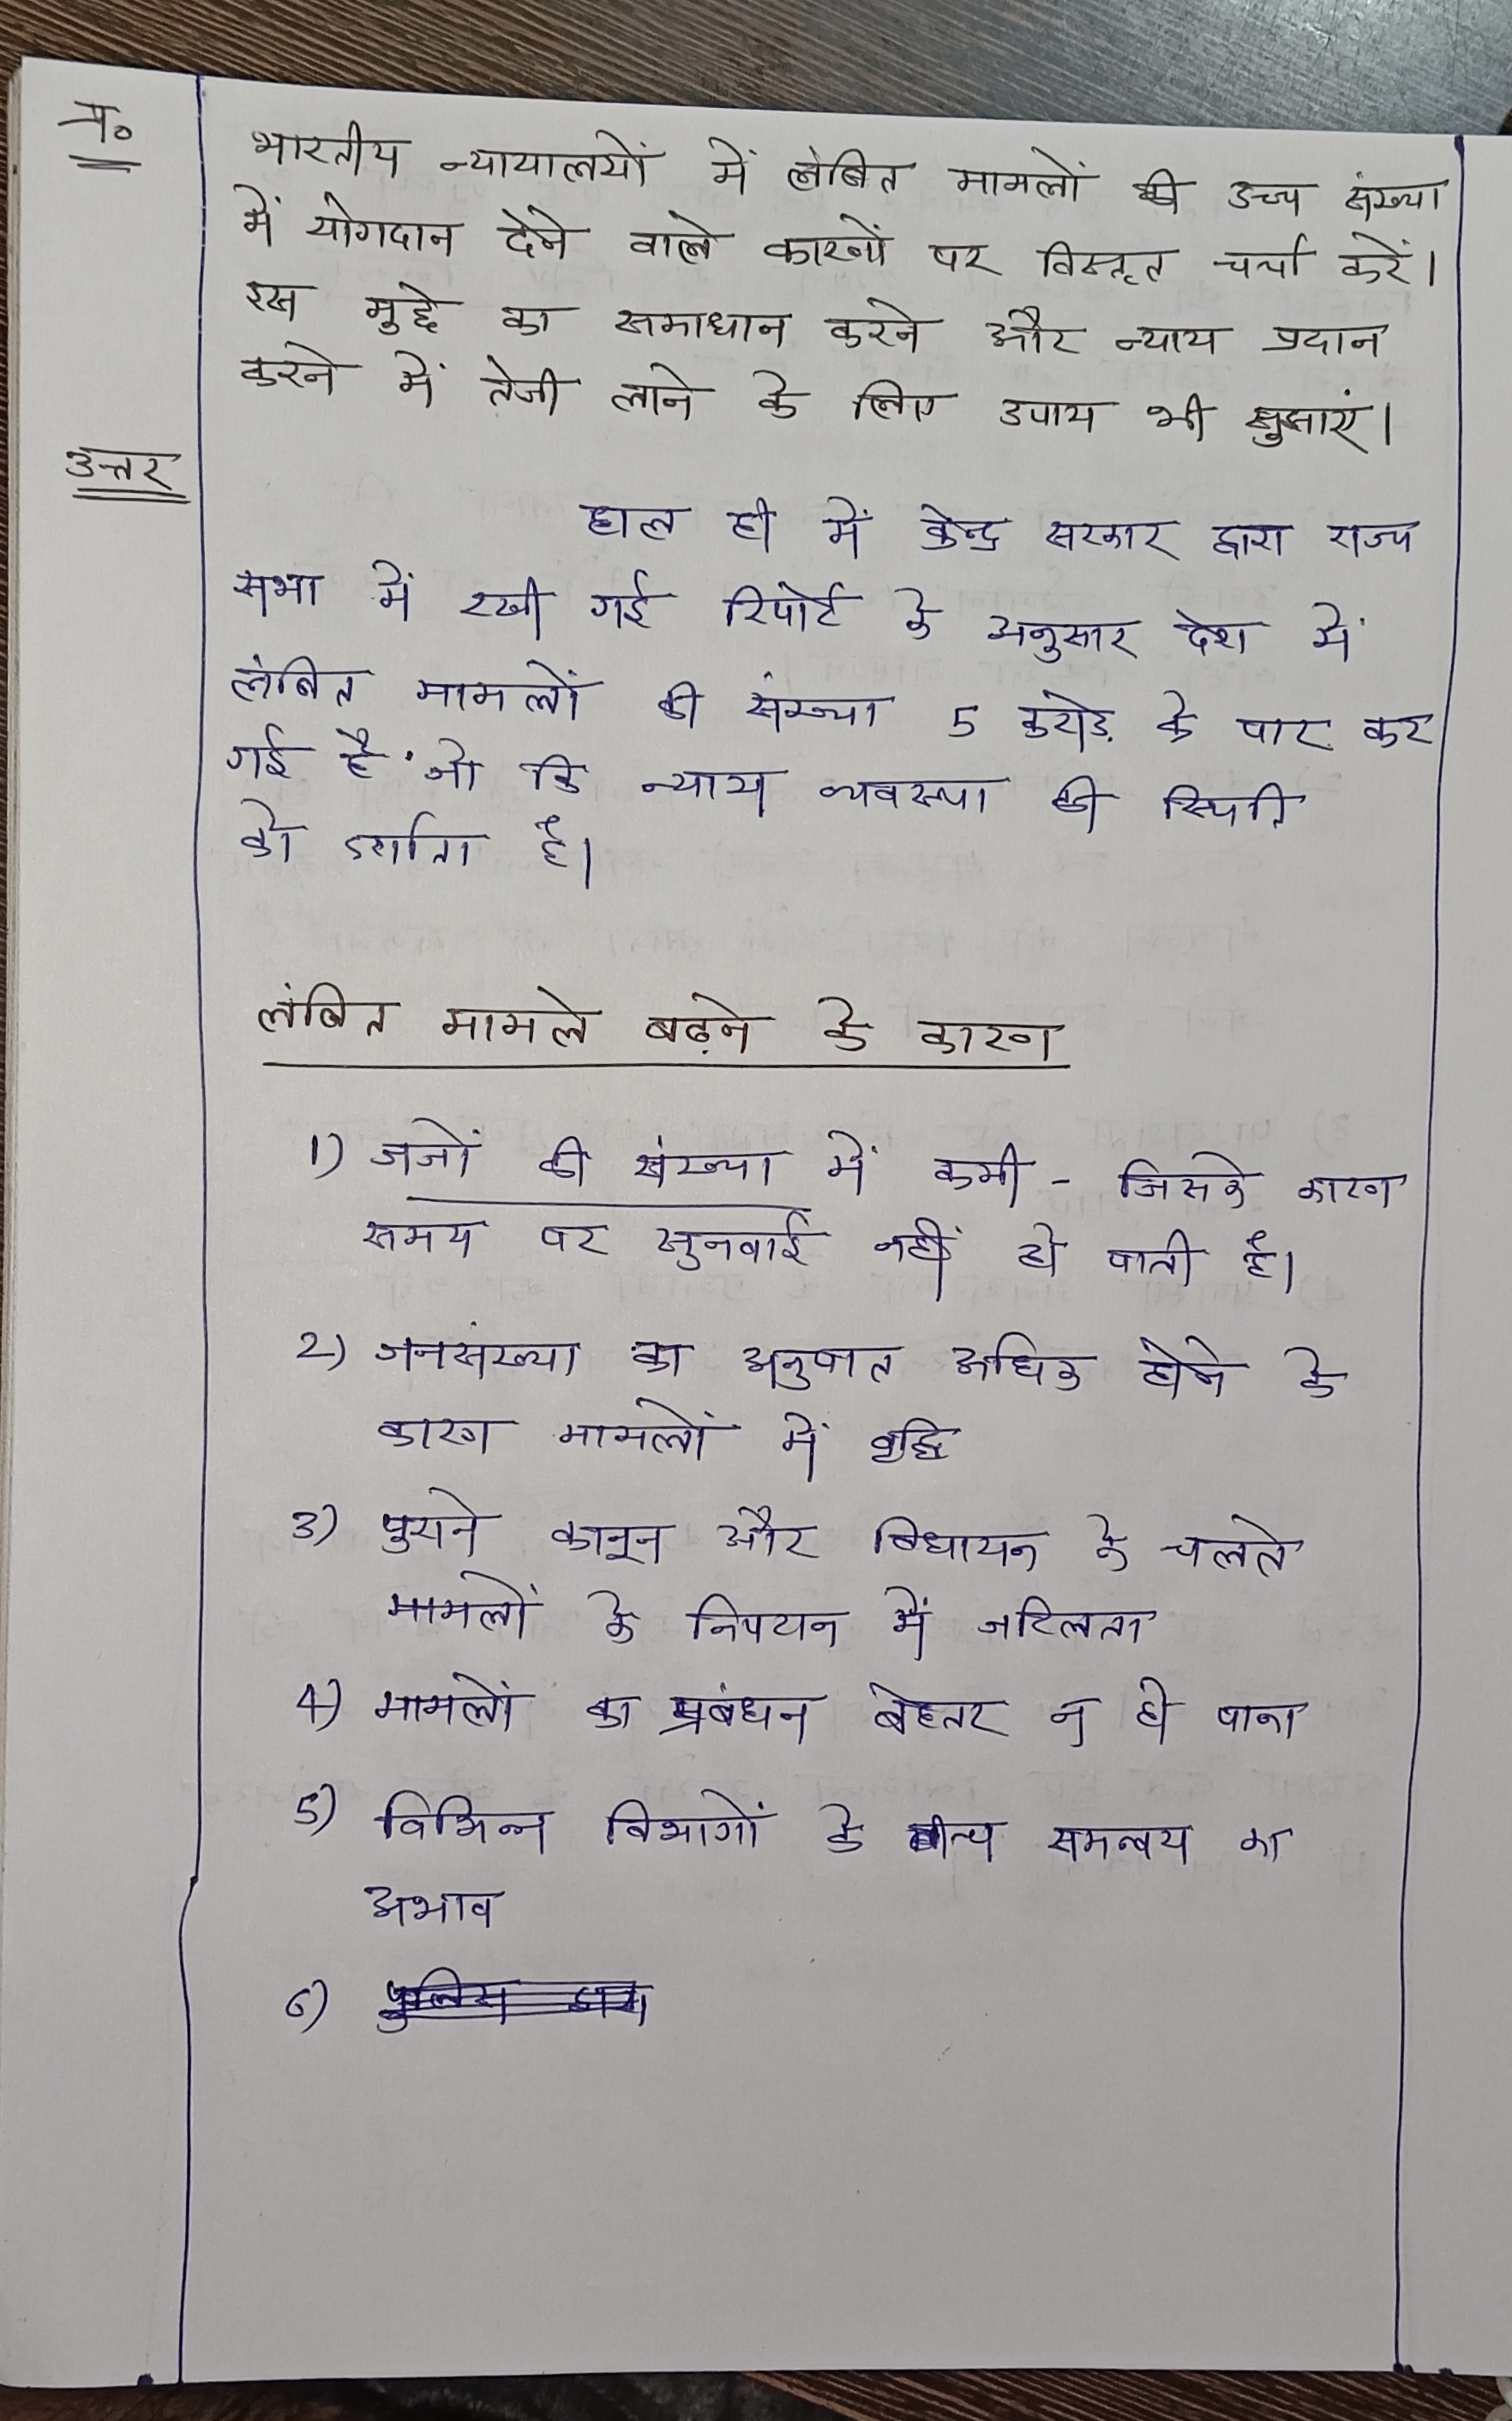 प्र०
भारतीय न्यायालयों में लंबित मामलों की उच्च संख्या
में योगदान देने वाले कारकों पर विस्तृत चर्चा करें।
इस मुद्दे का समाधान करने और न्याय प्रदान
करने में तेजी लाने के लिए उपाय भी सुझाएं।
उत्तर
हाल ही में केन्द्र सरकार द्वारा राज्य
सभा में रखी गई रिपोर्ट के अनुसार देश में
लंबित मामलों की संख्या 5 करोड़ के पार कर
गई है जो कि न्याय व्यवस्था की स्थिति
को दर्शाता है।
लंबित मामले बढ़ने के कारण
1) जजों की संख्या में कमी - जिसके कारण
समय पर सुनवाई नहीं हो पाती है।
2) जनसंख्या का अनुपात अधिक होने के
कारण मामलों में वृद्धि
3) पुराने कानून और विधायन के चलते
मामलों के निपटान में जटिलता
4) मामलों का प्रबंधन बेहतर न हो पाना
5) विभिन्न विभागों के बीच समन्वय का
अभाव
6) पुलिस